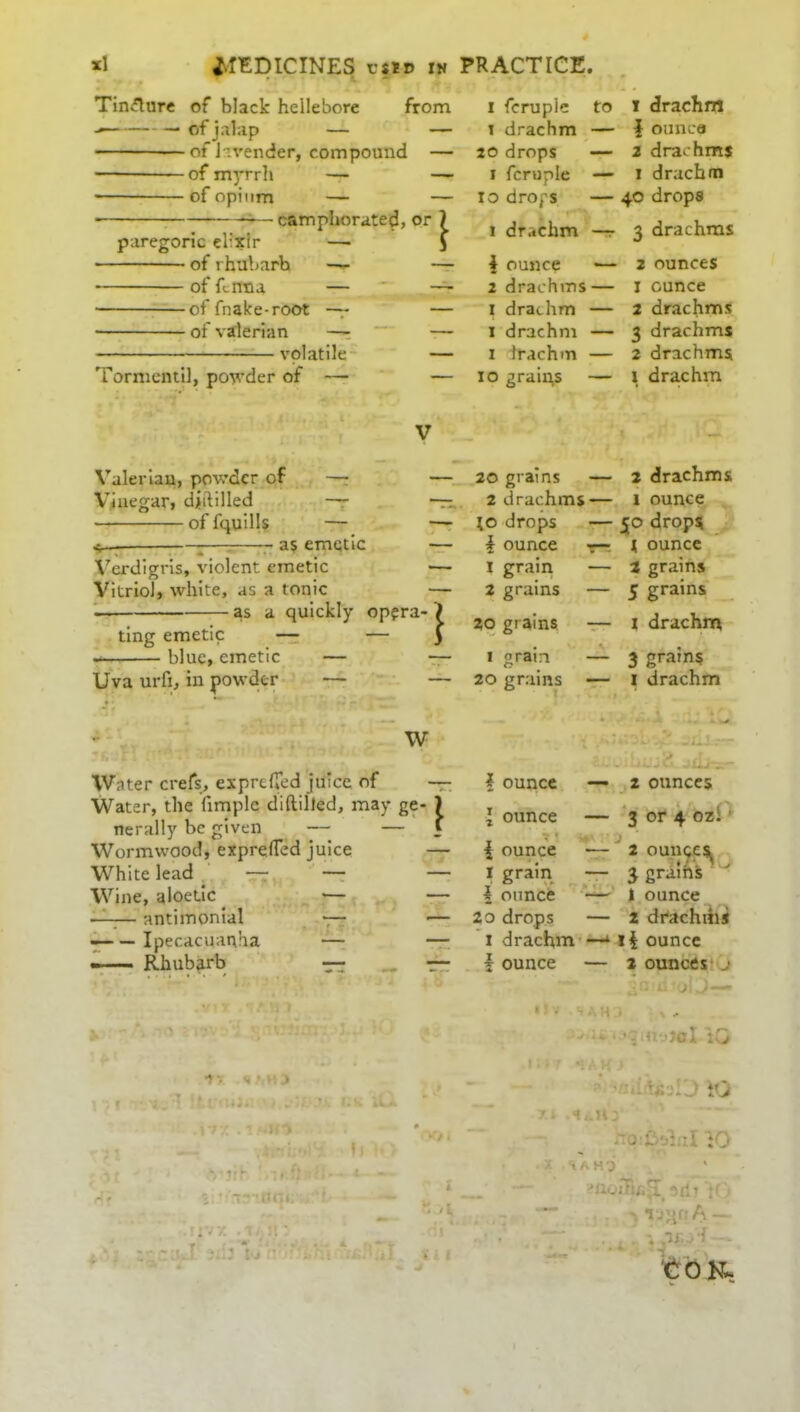 xl MEDICINES USED IN PRACTICE.
Tincture of black hellebore from 1 ſcruple to 1 drachm
—— of jalap — — 1 drachm — ½ ounce
—— of lavender, compound — 20 drops — 2 drachms
—— of myrrh — — 1 ſcruple — 1 drachm
—— of opium — — 10 drops — 40 drops
—— —— camphorated, or } 1 drachm — 3 drachms
paregoric elixir — }
—— of rhubarb — — ½ ounce — 2 ounces
—— of ſenna — — 2 drachms — 1 ounce
—— of ſnake-root — — 1 drachm — 2 drachms
—— of valerian — — 1 drachm — 3 drachms
—— —— volatile — 1 drachm — 2 drachms
Tormentil, powder of — — 10 grains — 1 drachm
V
Valerian, powder of — — 20 grains — 2 drachms
Vinegar, diſtilled — — 2 drachms — 1 ounce
—— of ſquills — — 10 drops — 50 drops
—— —— as emetic — ½ ounce — 1 ounce
Verdigris, violent emetic — 1 grain — 2 grains
Vitriol, white, as a tonic — 2 grains — 5 grains
—— as a quickly opera- } 20 grains — 1 drachm
ting emetic — — }
—— blue, emetic — — 1 grain — 3 grains
Uva urſi, in powder — — 20 grains — 1 drachm
W
Water creſs, expreſſed juice of — ounce — 2 ounces
Water, the ſimple diſtilled, may ge- } ounce — 3 or 4 oz.
nerally be given — — }
Wormwood, expreſſed juice — ounce — 2 ounces
White lead — — — 1 grain — 3 grains
Wine, aloetic — — ½ ounce — 1 ounce
—— antimonial — — 20 drops — 2 drachms
—— Ipecacuanha — — 1 drachm — 1½ ounce
—— Rhubarb — — ½ ounce — 2 ounces
CON-